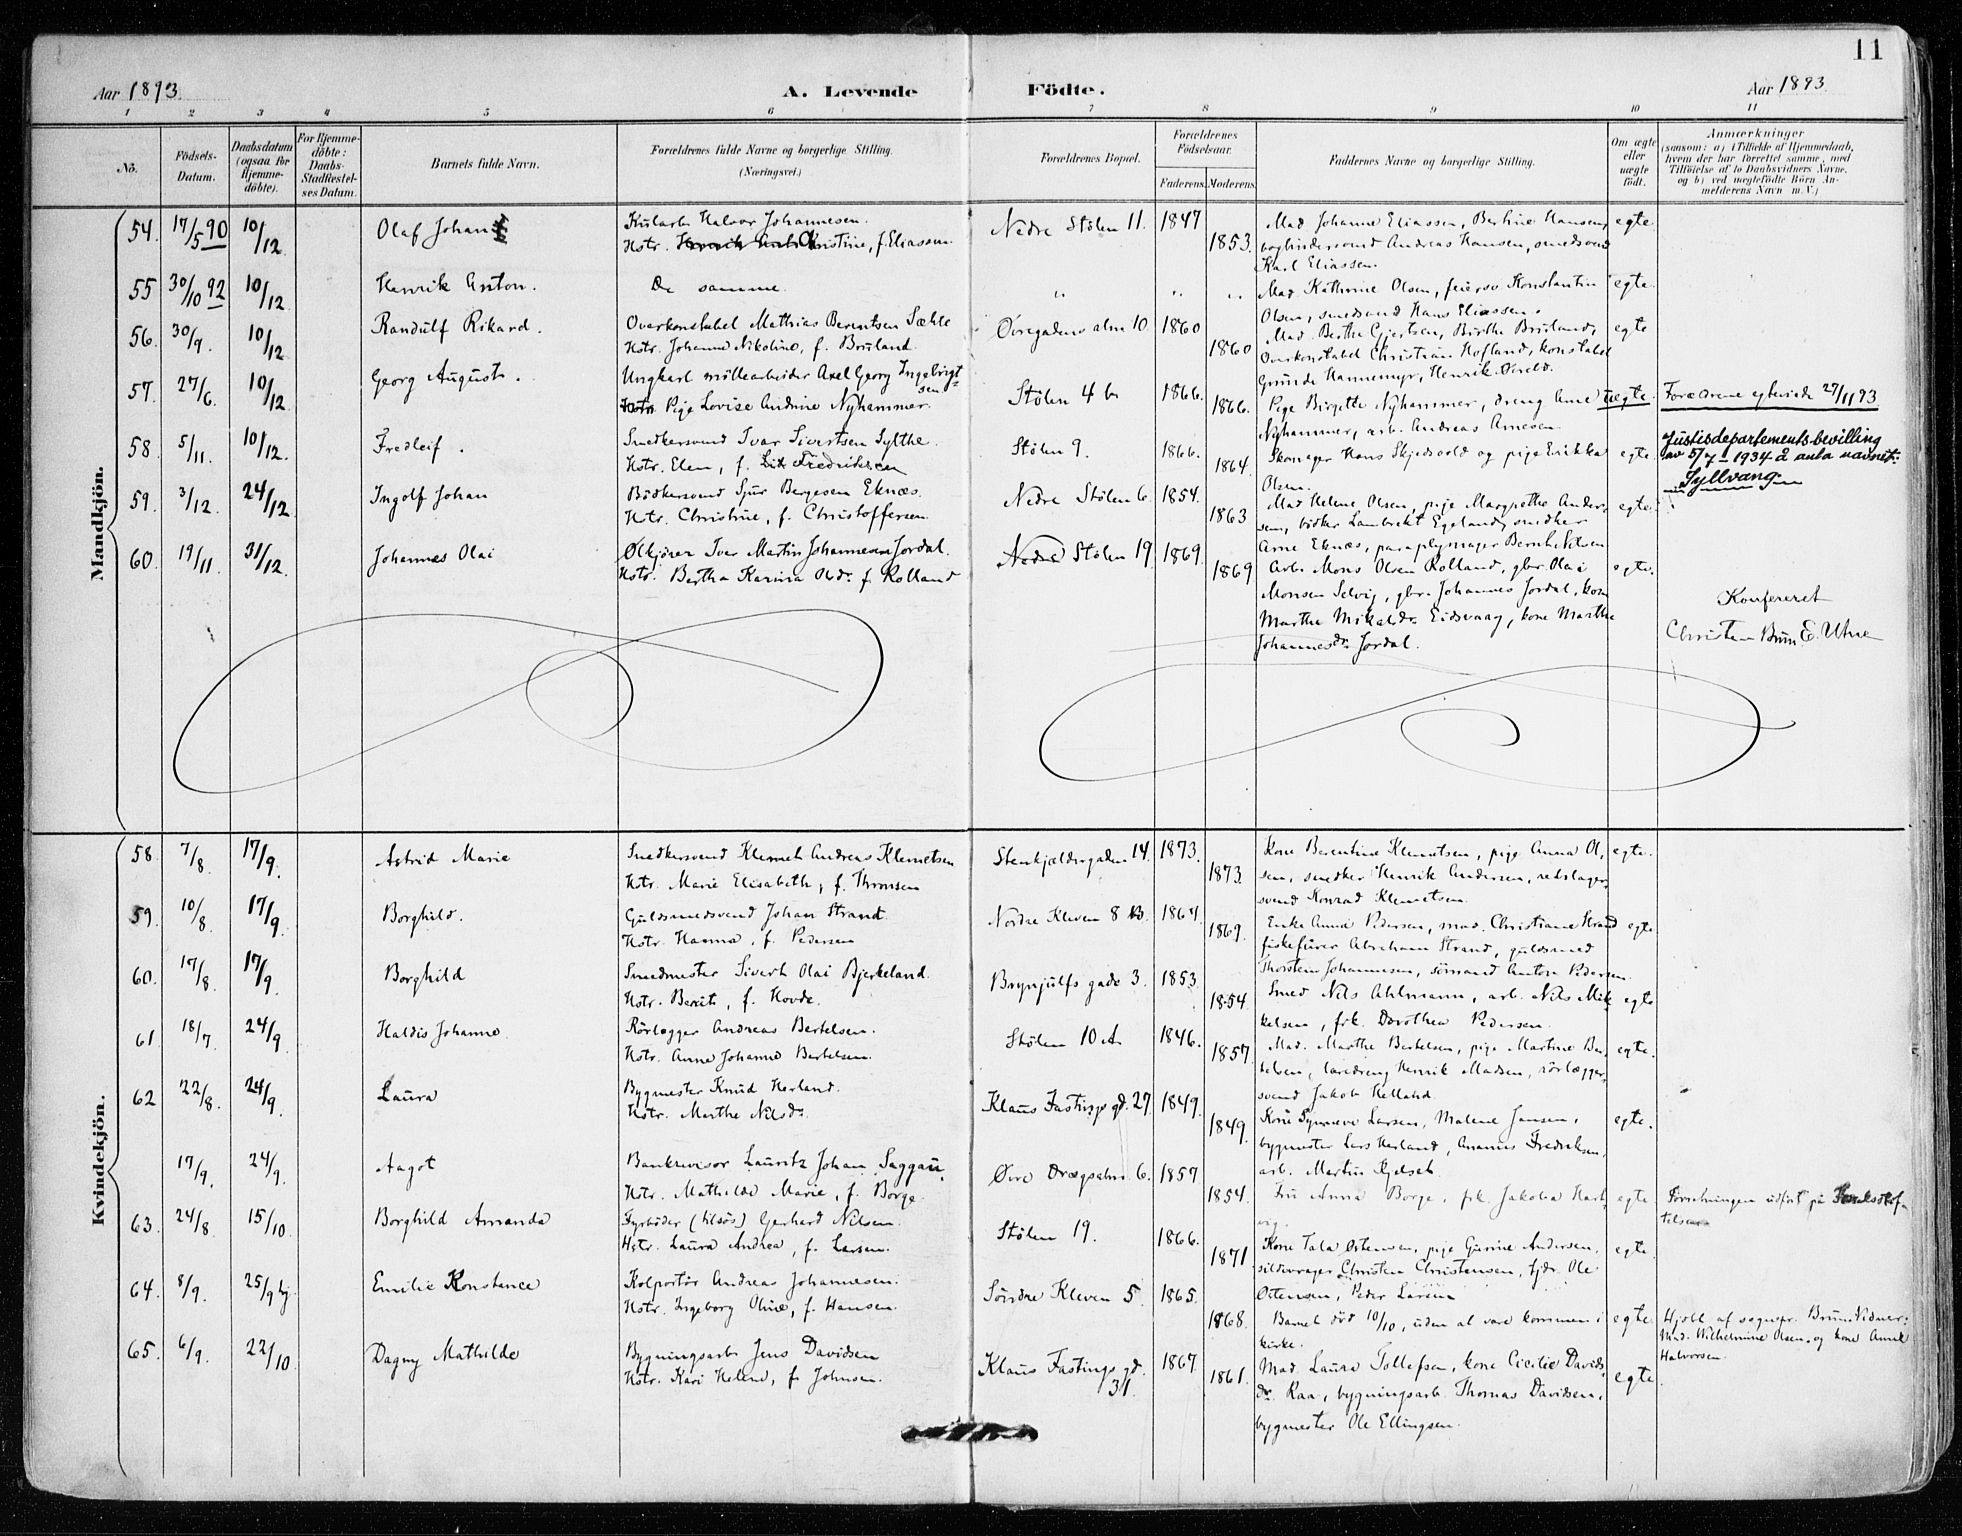 11
Aar 1893.
A. Levende Födte.
Aar 1893.
1 2 3 4 5 6 7 8 9 10 11
No.
Födsels-Datum.
Daabsdatum (ogsaa for Hjemme-döbte).
For Hjemme-döbte: Daabs-Stadfæstel-ses Datum.
Barnets fulde Navn.
Forældrenes fulde Navne og borgerlige Stilling. (Næringsvei.)
Forældrenes Bopæl.
Forældrenes Födselsaar.
Faderens. Moderens.
Faddernes Navne og borgerlige Stilling.
Om ægte eller uægte födt.
Anmærkninger
(saasom: a) i Tilfælde af Hjemmedaab,
hvem der har forrettet samme, med
Tilföielse af to Daabsvidners Navne,
og b) ved uægtefödte Börn An-
melderens Navn m. V.)
Mandkjön.
54. 17/5 90 10/12 Olaf Johan
Kularb. Halvor Johannesen.
Hstr. Kristine, f. Eliassen.
Nedre Stölen 11. 1847 1853.
Mad. Johanne Eliassen, Bertine Hansen,
bogbindersvend Andreas Hansen, smedsvend
Karl Eliassen.
egte.
55 30/10 92 10/12 Henrik Anton.
De samme.
" " "
Mad. Kathrine Olsen, feiersv. Konstantin
Olsen, smedsvend Hans Eliassen.
egte.
56. 30/9. 10/12 Randulf Rikard.
Overkonstabel Mathias Berentsen Sæhle
Hstr. Johanne Nikoline, f. Bruland.
Övregadens alm 10. 1860 1860
Mad. Berthe Gjertsen, Birthe Bruland,
Overkonstabel Christian Hofland, konstabel
Grunde Hannemyr, Henrik
egte
57. 27/6. 10/12 Georg August.
Ungkarl möllearbeider Axel Georg Ingebrigt-
sen
Pige Lovise Andrine Nyhammer.
Stölen 4 b 1866. 1866.
Pige Birgitte Nyhammer, dreng Arne
Nyhammer, arb. Andreas Arnesen.
uegte.
Forældrene egteviede 27/11 93
58. 5/11. 10/12. Fredleif.
Smedkersvend Ivar Sivertsen Sylthe.
Hstr. Elen, f. Fredriksen
Stölen 9. 1866. 1864.
Skomager Hans Skjedsvold og pige Erikka
Olsen.
egte.
Justisdepartements bevilling
av 5/7 1934 å anta navnet:
Syllvang
59. 3/12. 24/12 Ingolf Johan
Bödkersvend Sjur Bergesen Eknæs.
Hstr. Christine, f. Christoffersen.
Nedre Stölen 6. 1854. 1863
Mad Helene Olsen, pige Margrethe Ander-
sen, bödker Lambrekt Egeland, smedker
Arne Eknæs, paraplymager Bernh. Nilsen
egte.
60. 19/11. 31/12. Johannes Olai
Ölkjörer Ivar Martin Johannesen Jordal.
Hstr. Bertha Karina Olsdr. f. Rolland
Nedre Stölen 19. 1869. 1869
Arb. Mons Olsen Rolland, gbr. Olai
Monsen Selvig, gbr. Johannes Jordal, kone
Marthe Mikalsdr. Eidsvaag, kone Marthe
Johannesdr. Jordal.
egte.
Konfereret
Christen Brun E. Utne
Kvindekjön.
58. 7/8. 17/9. Astrid Marie
Snedkersvend Klemet Andreas Klemetsen
Hstr. Marie Elisabeth, f. Thronsen
Stenkjeldergaden 14. 1873. 1873.
Kone Berentine Klemetsen, pige Anna Ol-
sen, smedker Henrik Andersen, rebslager-
svend Konrad Klemetsen.
egte.
59. 10/8. 17/9. Borghild.
Guldsmedsvend Johan Strand
Hstr. Hanna, f. Pedersen
Nordre Kleven 8 B. 1864. 1869.
Enke Anna Pedersen, mad. Christiane Strand
fiskeförer Abraham Strand, guldsmed
Thorstein Johannesen, sömand Anton Pedersen.
egte.
60. 17/8. 17/9. Borghild
Smedmester Sivert Olai Bjerkeland.
Hstr. Berit, f. Hovde.
Brynjulfs gade 3. 1853. 1854.
Smed Nils Ahlmann, arb. Nils Mik-
kelsen, frk. Dorothea Pedersen.
egte
61. 18/7. 24/9. Haldis Johanne
Rörlegger Andreas Bertelsen.
Hstr. Anne Johanne Bertelsen.
Stölen 10 A. 1846. 1857.
Mad. Marthe Bertelsen, pige Martine Ber-
telsen, læredreng Henrik Madsen, rörlegger-
svend Jakob Helland
egte.
62 22/8. 24/9. Laura
Bygmester Knud Herland.
Hstr. Marthe Nilsdr.
Klaus Fastings gd. 27. 1849. 1849.
Kone Synneve Larsen, Malene Jansen,
bygmester Lars Herland, Ananias Fredriksen,
arb. Martin Gjelseth
egte.
17/9. 24/9. Aagot
Bankrevisor Lauritz Johan Saggau,
Hstr. Mathilde Marie, f. Borge.
Övre Drægsalm. 6. 1857 1854.
Fru Anna Borge, frk. Jakobia Hart-
vig.
egte
Forretningen udfört på
telsen
63. 24/8. 15/10. Borghild Amanda
Fyrböder (tilsös) Gerhard Nilsen.
Hstr. Laura Andrea, f. Larsen.
Stölen 19. 1866. 1871
Kone Tala Ostensen, pige Gurine Andersen,
sildevrager Christen Christensen, tjdr. Ole
Ostensen, Peder Larsen
egte.
64. 8/9. 25/9 hj. Emilie Konstance
Kolportör Andreas Johannesen.
Hstr. Ingeborg Oline, f. Hansen.
Söndre Kleven 5. 1865. 1868.
Barnet död 10/10, uden at være kommen i
kirke.
egte
Hjdbt af sognepr. Brun. Vidner:
Mad. Wilhelmine Olsen, og kone Anne
Halvorsen.
65. 6/9. 22/10. Dagny Mathilde
Bygningsarb. Jens Davidsen
Hstr. Kari Helene, f. Johnsen.
Klaus Fastings gd.
31. 1867 1861.
Mad. Laura Tollefsen, kone Cicilie Davids-
dr. Raa, bygningsarb. Thomas Davidsen,
bygmester Ole Ellingsen.
egte